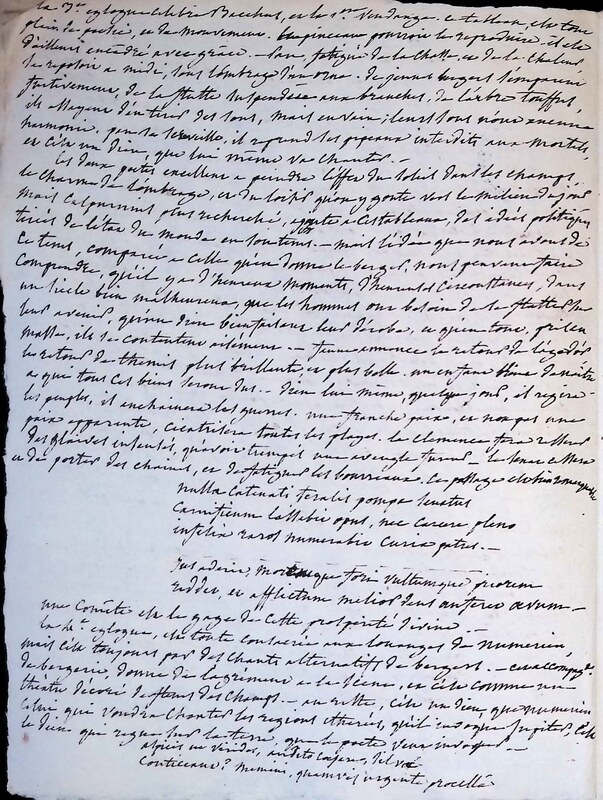 la 3e. eglogue celebre Bacchus, et la 1ere. Vendange. ce tableau, est tout
plein de poesie, et de mouvement. un pinceau pourroit le reproduire. il est
d'ailleurs encadré avec grace. — Pan, fatigué de la chasse, et de la chaleur
se reposoit a midi, sous l'ombrage d'un orne. de jeunes bergers s'emparent
furtivement, de la flutte suspendue aux branches, de l'arbre touffu,
ils essayent d'en tirer des sons, mais en vain; leurs sons nont aucune
harmonie, pan se reveille, il reprend les pipeaux interdits aux mortels
et c'est un Dieu, que lui même va chanter. —
Les deux poetes excellent a peindre l'effet du soleil dans les champs,
le charme de l'ombrage, et du loisir qu'on y goute vers le milieu du jour
mais Calpurnius plus recherché, ajoute a ces tableaux, des idées politiques
tirées de l'etat du monde en son tems. — mais l'idée que nous avons de
ce tems, comparée a celle qu'en donne le berger, nous peuvent faire
comprendre, qu'il y a d'heureux moments, d'heureuses circonstances, dans
un siecle bien malheureux, que les hommes ont besoin de se flatter sur
leur avenir, qu'un dieu bienfaisant leur derobe, et qu'en tout, pris en
masse, ils se contentent aisément. — faune annonce le retour de l'age d'or
le retour de themis plus brillante, et plus belle. un enfant
a qui tous ces biens seront dus. — Dieu lui même, quelque jour, il regira
les peuples, il enchainera les guerres. une franche paix, et non pas une
paix apparente, cicatrisera toutes les playes. la clemence fera
des glaives insensés, qu'avoit trempés une aveugle fureur — le senat cessera
et de porter des chaines, et de fatiguer les bourreaux. ce passage est bien remarquable
nulla catenati feralis pompa senatus
carnificum lassabit opus, nec carcere pleno
infelix raros numerabit curia patres. —
Jus aderit, moremque fori vultumque priorem
reddet, et afflictum melior deus auferet aevum —
une Comète est le gage de cette prosperité divine —
la 4e. eglogue, est toute consacrée aux louanges de numerien,
mais c'est toujours par des chants alternatifs de bergers. —
de bergerie, donne de l'agrement a la scene, et c'est comme un
théatre décoré de fleurs des champs. — au reste, c'est un dieu, que numerien
celui qui voudra chanter les regions etherées, qu'il invoque Jupiter, c'est
le dieu qui regne sur la terre, que le poete veut invoquer —